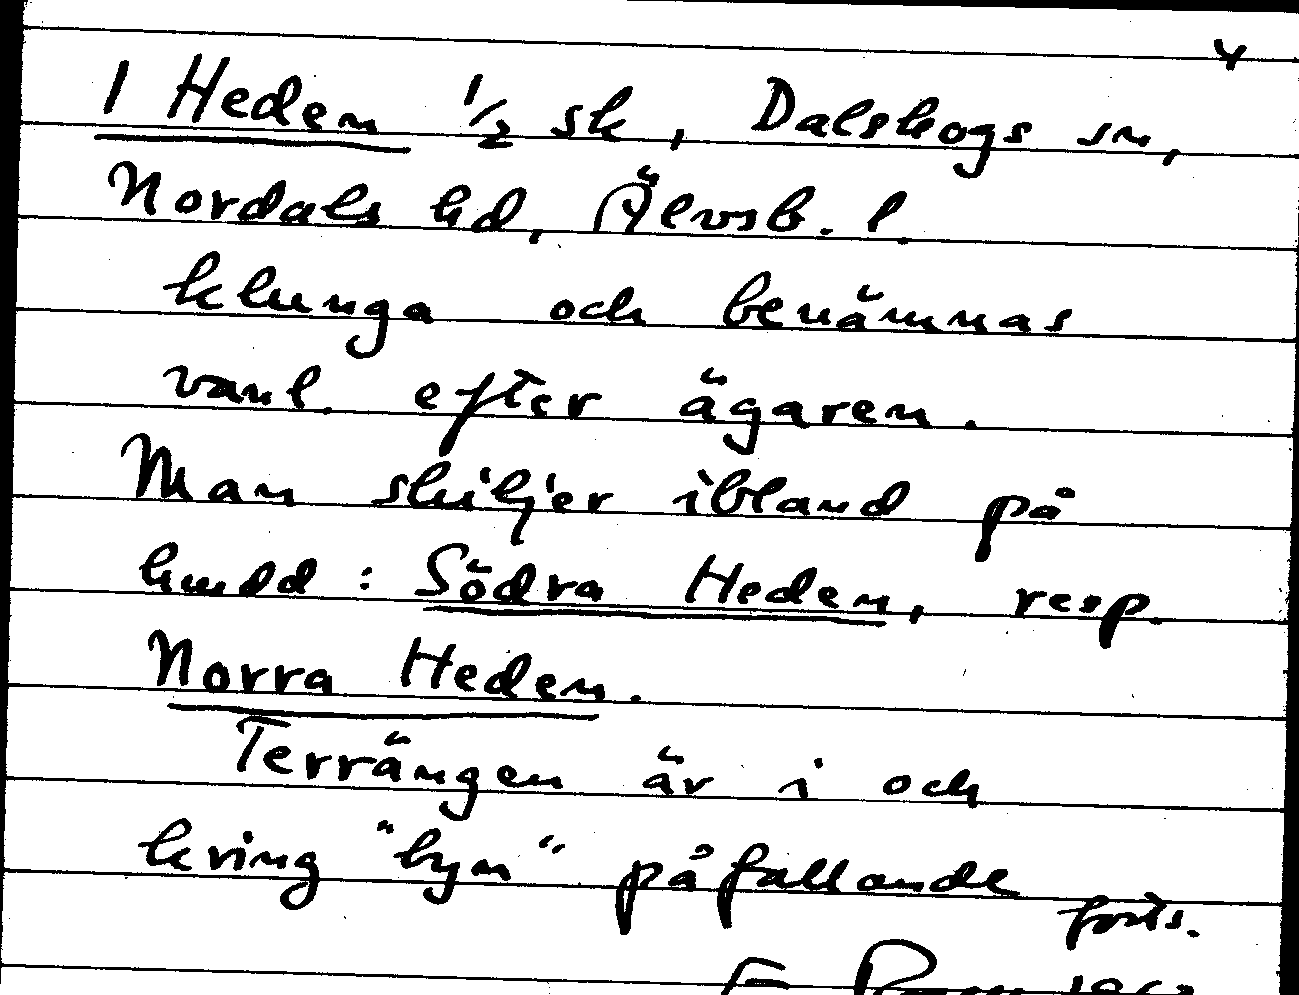 4
1 Heden 1/2 sk, Dalskogs sn,
Nordals hd, Älvsb. l.
klunga och benämnas
vanl. efter ägaren.
Man skiljer ibland på
Södra Heden, resp.
Norra Heden.
Terrängen är i och
kring "byn" påfallande
forts.